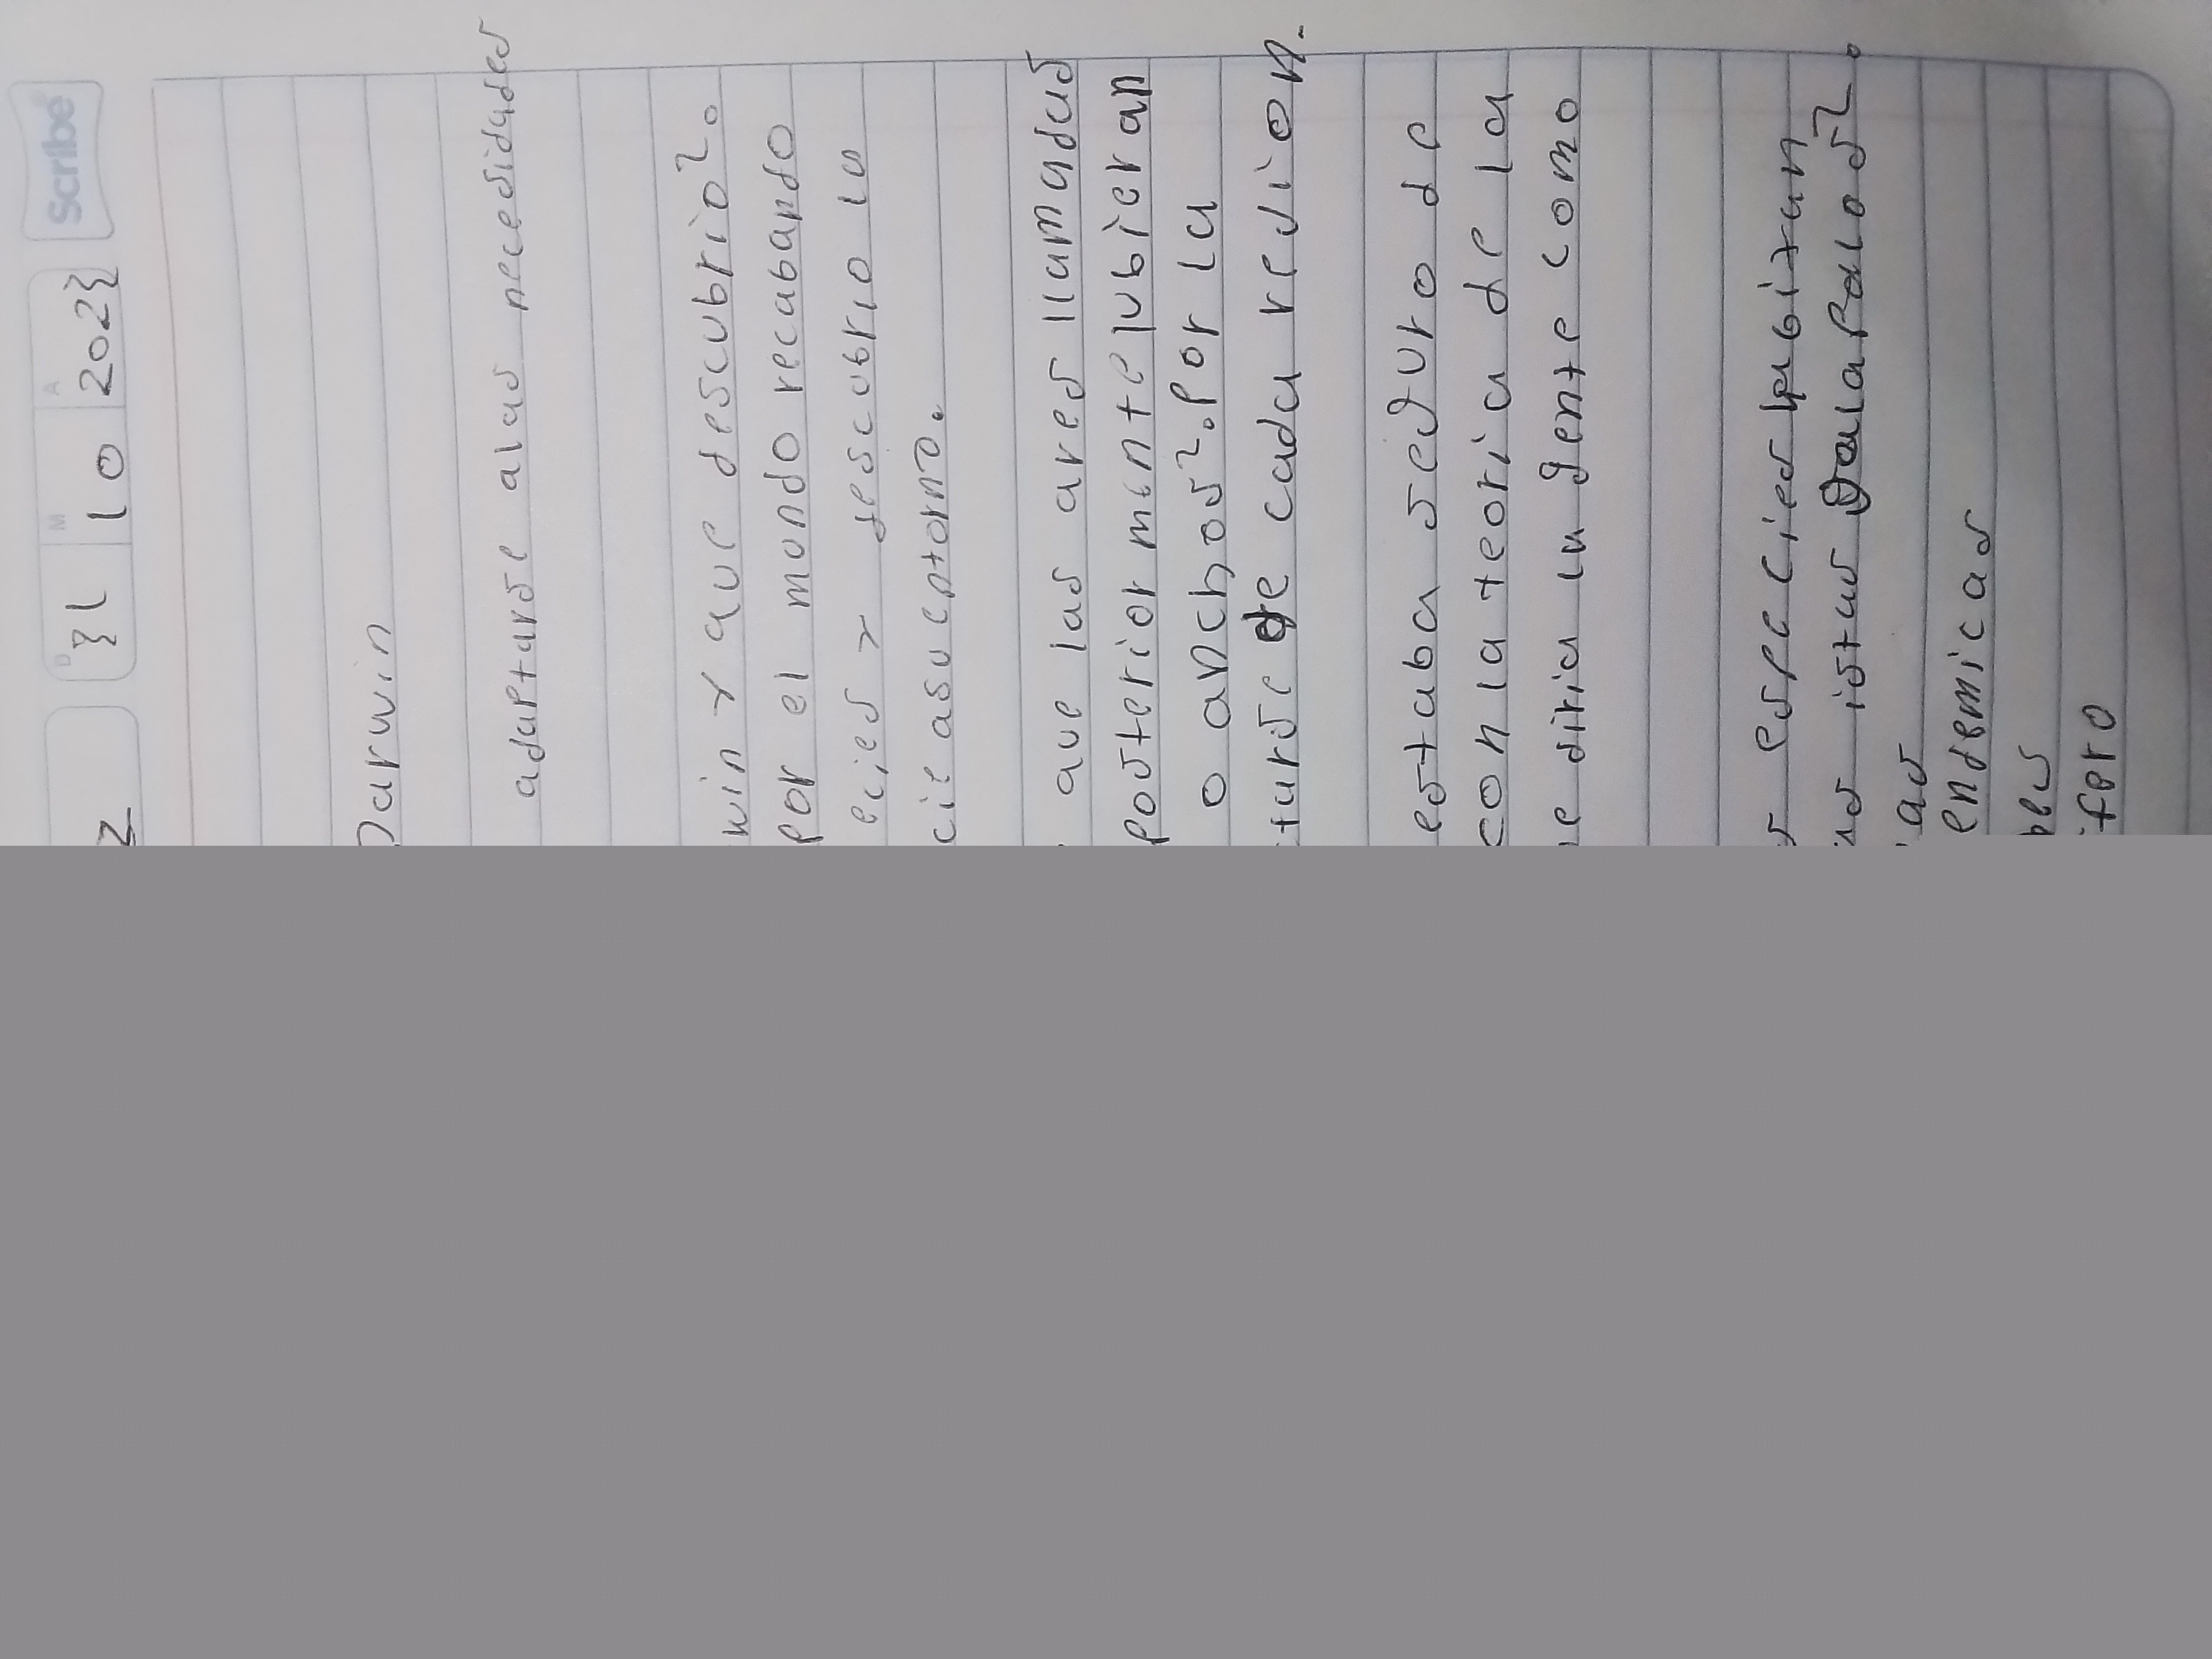 Scribe
D M A
31 10 2023
Darwin
adaptarse alas necesidades
win y que descubrio?.
por el mundo recabando
ecies y descubrio la
cie asu entorno.
que las aves llamadas
posteriormente tubieran
o anchos?. por la
tarse de cada region.
estaba seguro de
con la teoria de la
e diria la gente como
especies habitan
as islas Galapalos?.
as
endemicas
fero